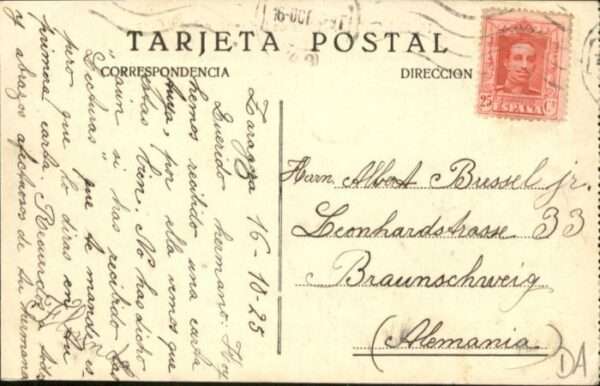 16-OCT
TARJETA POSTAL
CORRESPONDENCIA
DIRECCION
25 Cs
ESPAÑA
Zaragoza 16-10-25
Querido hermano: Hoy
hemos recibido una carta
tuya, por ella vemos que
estas bien. No has dicho
aun si has recibido las
"Lecturas" que te mandé es-
pero que lo diras en tu
primera carta Recuerdos a
y abrazos afectuosos de tu hermana
Harn. Albert Bussel jr.
Leonhardstrasse 33
Braunschweig
(Alemania)
DA